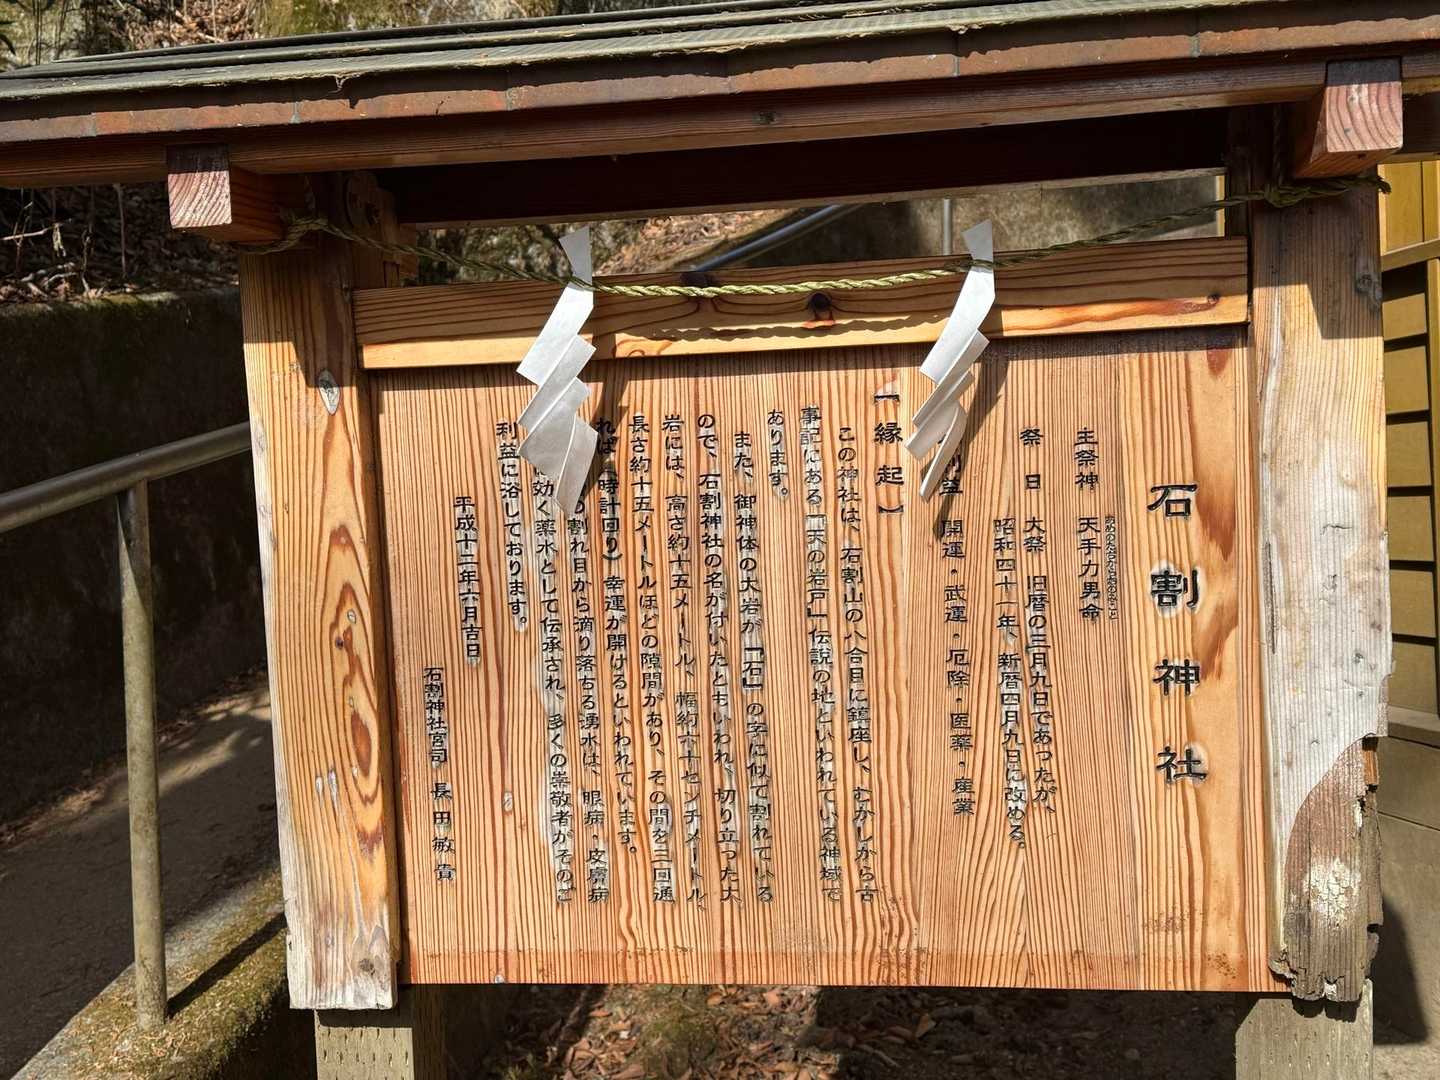 石割神社
主祭神　天手力男命
あめのたぢからおのみこと
祭　日　大祭　旧暦の三月九日であったが、
昭和四十一年、新暦四月九日に改める。
利益　開運・武運・厄除・医薬・産業
【縁起】
この神社は、石割山の八合目に鎮座し、むかしから古
事記にある「天の岩戸」伝説の地といわれている神域で
あります。
また、御神体の大岩が「石」の字に似て割れている
ので、石割神社の名が付いたともいわれ、切り立った大
岩には、高さ約十五メートル、幅約六十センチメートル、
長さ約十五メートルほどの隙間があり、その間を三回通
れば（時計回り）幸運が開けるといわれています。
割れ目から滴り落ちる湧水は、眼病・皮膚病
に効く薬水として伝承され、多くの崇敬者がそのご
利益に浴しております。
平成十二年六月吉日
石割神社宮司　長田敏貴